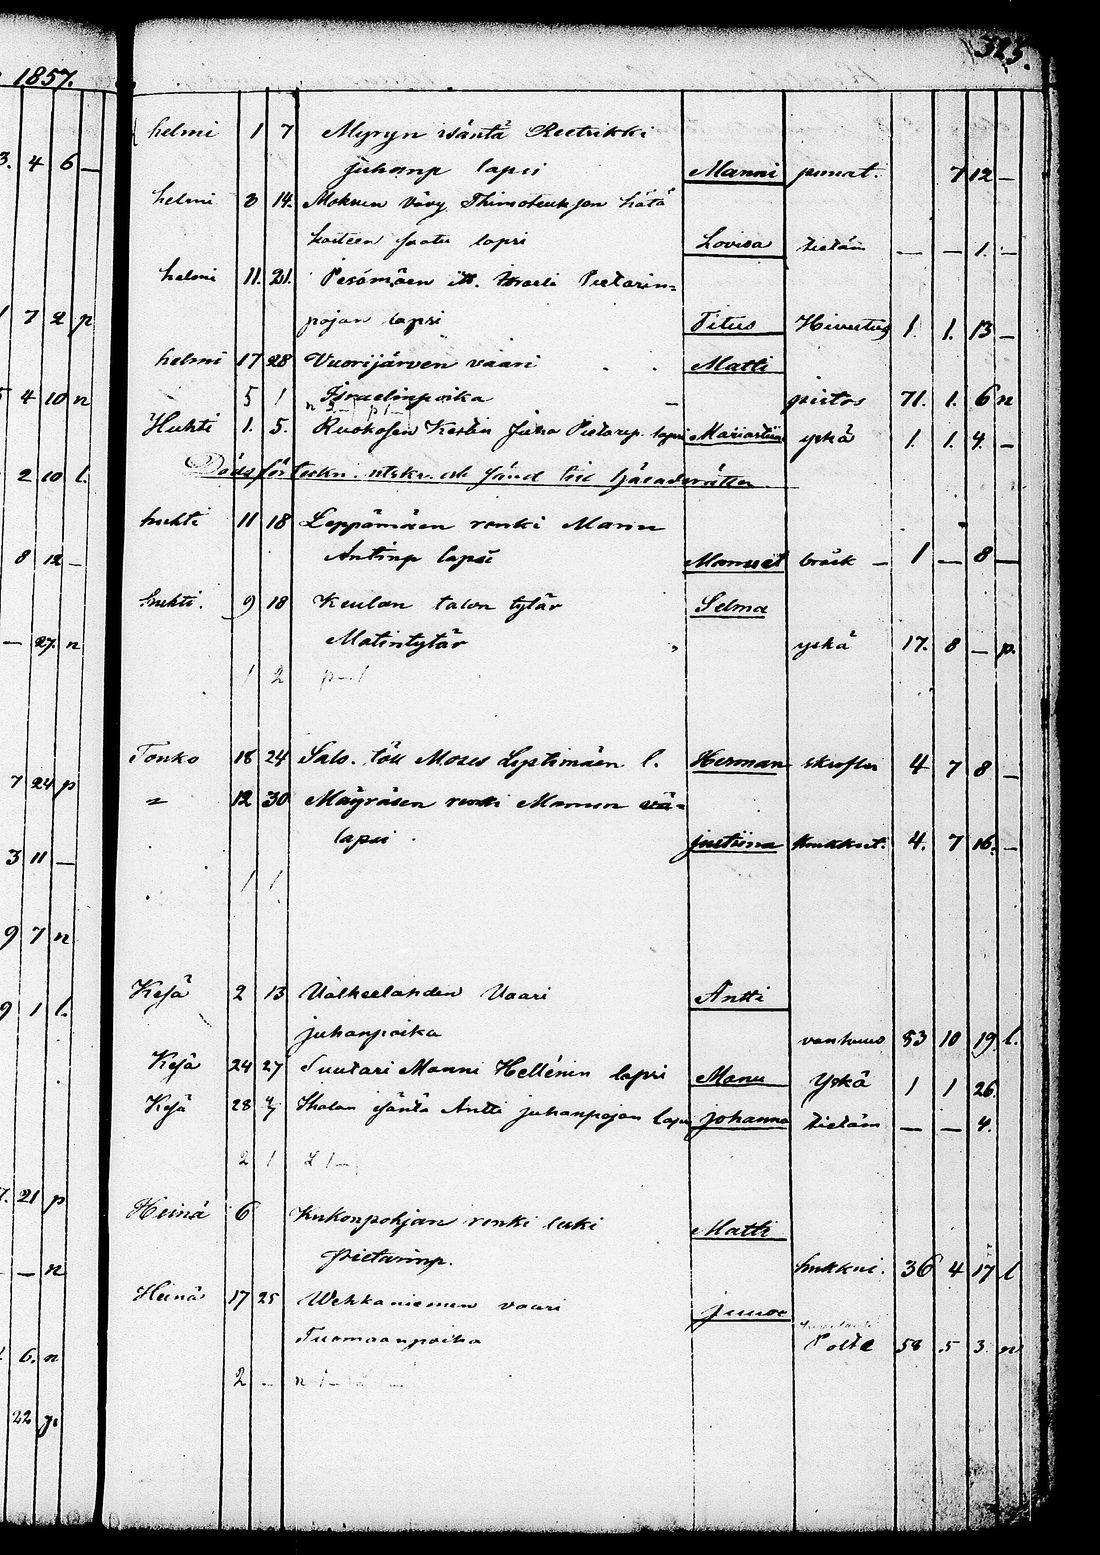 1857.
325.
helmi 1 7 Myryn isäntä Reetrikki
3. 4 6 –
juhanp lapsi Manni punat. 7 12 –
helmi 8 14. Moksun Vävy Thimoteuksen
lapsi Lovisa tietäm – – 1. –
helmi 11. 21. Pesämäen itt. Israeli Pietarin=
7 2 p
pojan lapsi Titus Hivutus 1. 1. 13 –
helmi 17 28 Vuorijärven vaari Matti
5 1
4 10 n
Israelinpoika pistos 71. 1. 6 n
Huhti 1. 5. Ruokosen Kestin Juha Pietarp. lapsi Mariastiina yskä 1. 1. 4. –
2 10 l.
Dödsförteckn. utskr. och sänd till häradsrätten
huhti 11 18 Leppämäen renki Manu
8 12 –
Antinp lapsi Manuel bräck – 1 – 8 –
huhti. 9 18 Keulan talon tytär Selma
– 27. n
Matintytär yskä 17. 8 – p.
1 2 p–1
Touko 18 24 Salo. töll Moses Leptimäen l. Herman skrofler 4 7 8 –
7 24 p
= 12 30 Mäyräsen renki Mannun
lapsi justiina kuukkut. 4. 7 16. –
3 11 –
1 1.
9 7 n
Kesä 2 13 Valkeelahden Vaari Antti
9 1 l.
juhanpoika vanhuus 83 10 19 l.
Kesä 24 27 Suutari Manni Hellénin lapsi Manu Yskä 1 1 26.
Kesä 28 Ihalan isäntä Antti juhanpojan lapsi johanna tietäm – – 4.
2 1
21 p
Heinä 6 Kukonpohjan renki Matti
Pietarinp. hukkui. 36 4 17 l
– n
Heinä 17 25 Wehkaniemen vaari
Tuomaanpoika Polte 58 5 3. n
6. n
2 –
22 p